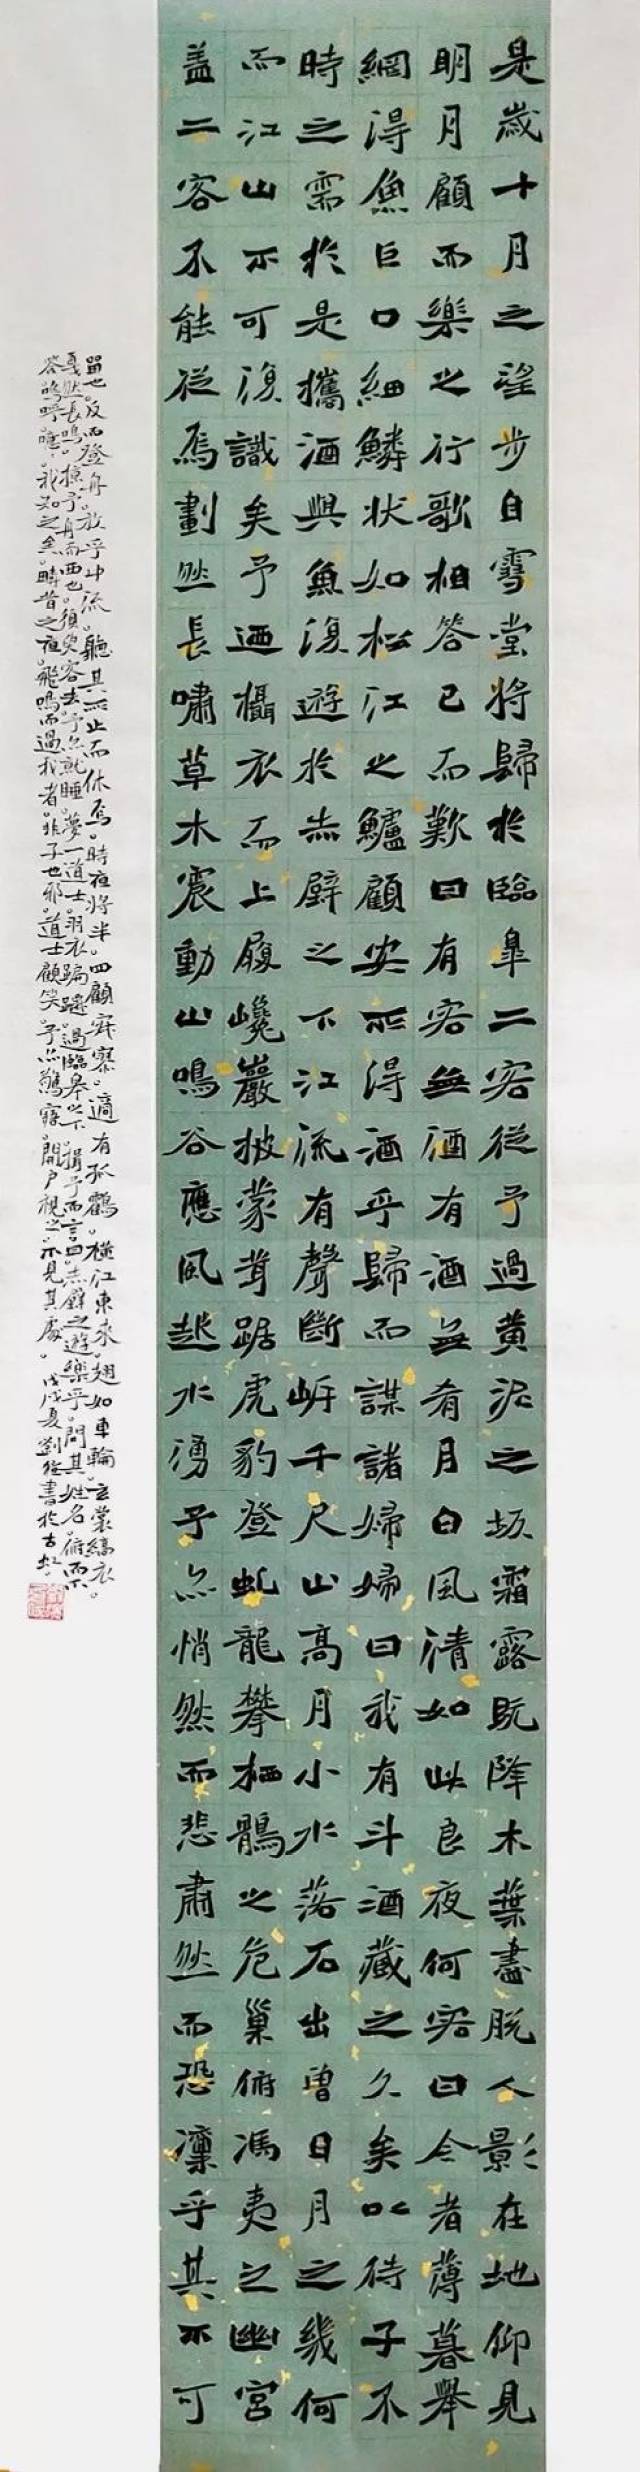 是歲十月之望步自雪堂將歸於臨皋二客從予過黄泥之坂霜露既降木葉盡脫人影在地仰見
明月顧而樂之行歌相答已而歎曰有客無酒有酒無肴月白風清如此良夜何客曰今者薄暮舉
網得魚巨口細鱗狀如松江之鱸顧安所得酒乎歸而謀諸婦婦曰我有斗酒藏之久矣以待子不
時之需於是攜酒與魚復遊於赤壁之下江流有聲斷岸千尺山高月小水落石出曾日月之幾何
而江山不可復識矣予迺攝衣而上履巉巖披蒙茸踞虎豹登虬龍攀栖鶻之危巢俯馮夷之幽宮
蓋二客不能從焉劃然長嘯草木震動山鳴谷應風起水湧予亦悄然而悲肅然而恐凛乎其不可
留也。反而登舟。放乎中流。聽其所止而休焉。時夜將半。四顧寂寥。適有孤鶴。橫江東來。翅如車輪。玄裳縞衣。
戛然長鳴。掠予舟而西也。須臾客去。予亦就睡。夢一道士。羽衣蹁躚。過臨皋之下。揖予而言曰。赤壁之遊樂乎。問其姓名。俯而不
答。嗚呼噫。我知之矣。疇昔之夜。飛鳴而過我者。非子也邪。道士顧笑。予亦驚寤。開戶視之。不見其處。戊戌夏劉書於古